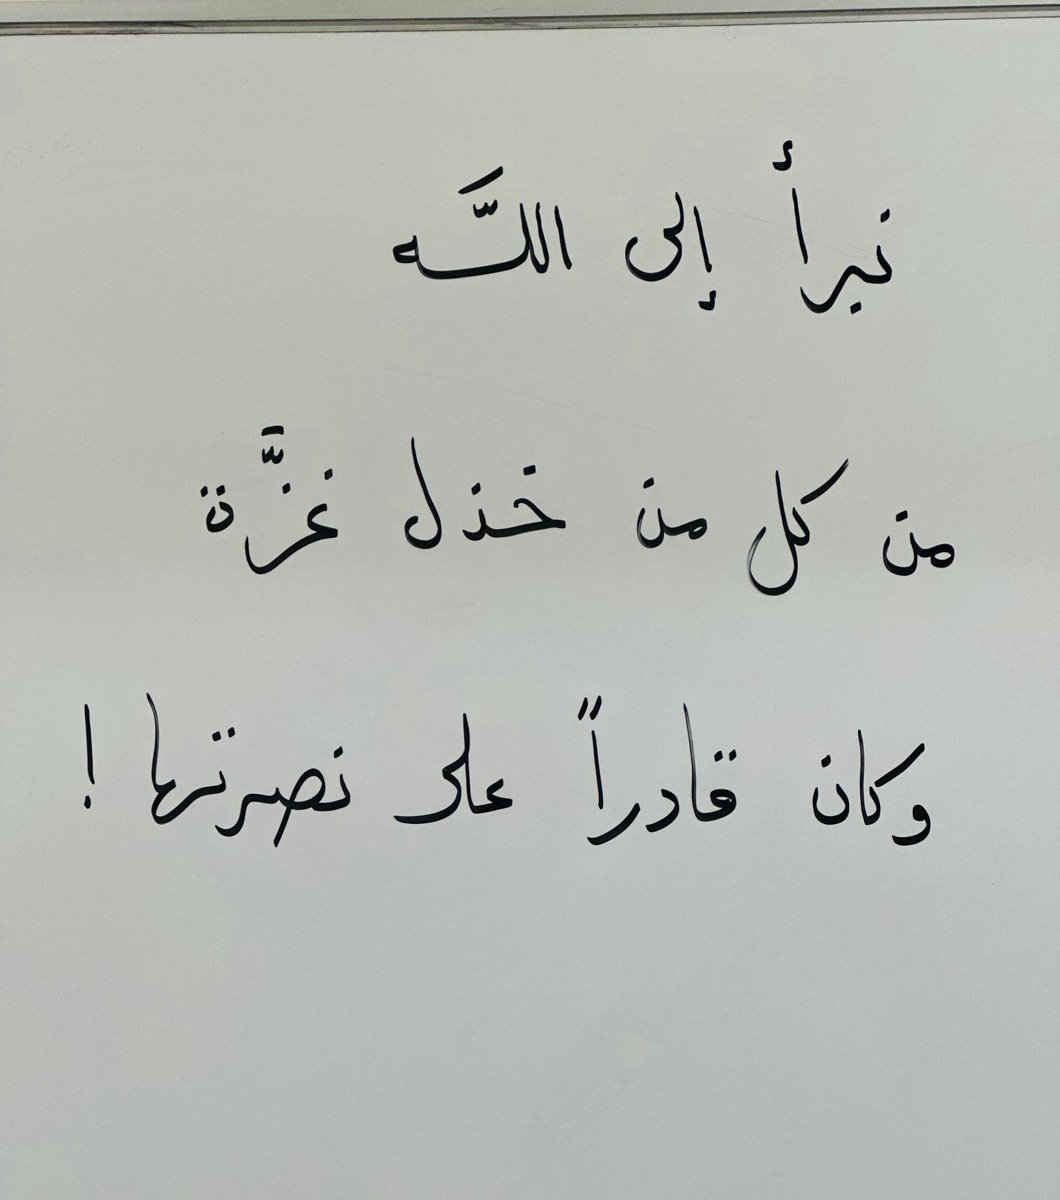 نبرأ إلى اللَّه
من كل من خذل غزَّة
وكان قادراً على نصرتها !